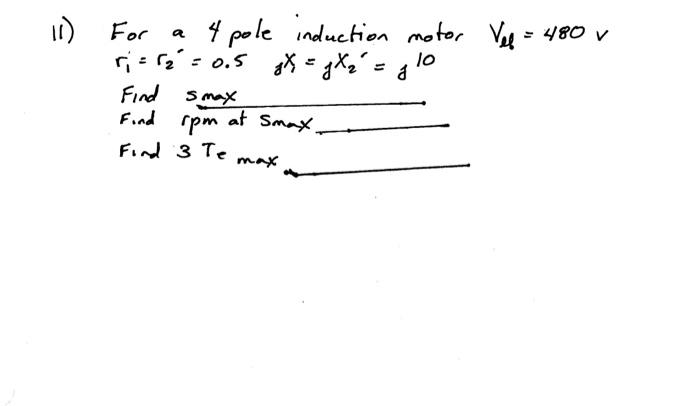 11) For a 4 pole induction motor Vll = 480 v
r1 = r2' = 0.5 jX1 = jX2' = j 10
Find smax
Find rpm at smax
Find 3 Te max